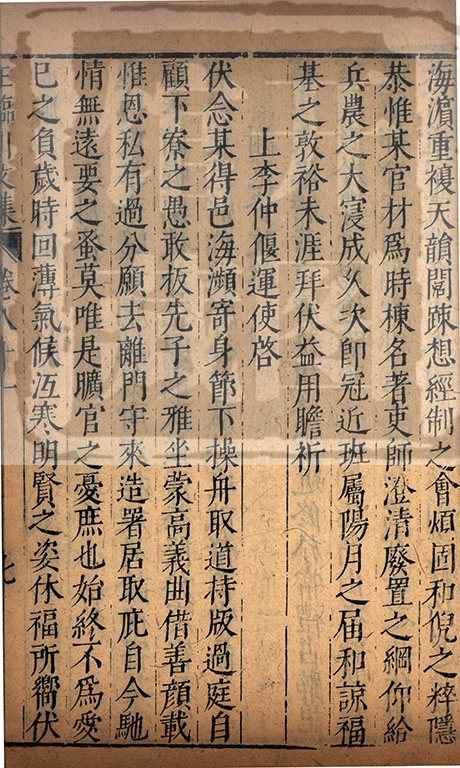 海濵重複天韻閎疎想經制之會煩固和倪之粹隱
恭惟某官材爲時棟名著吏師澄清廢置之綱仰給
兵農之大寖成久次卽冠近班屬陽月之屆和諒福
基之敦裕未涯拜伏益用瞻祈
上李仲偃運使啓
伏念某得邑海瀕寄身節下操舟取道持版過庭自
顧下寮之愚敢扳先子之雅坐蒙高義曲借善顔載
惟恩私有過分願去離門守來造署居取庇自今馳
情無遠要之蚤莫唯是曠官之憂庶也始終不爲愛
巳之負歲時回薄氣候冱寒明賢之姿休福所嚮伏
王臨川文集 卷八十一